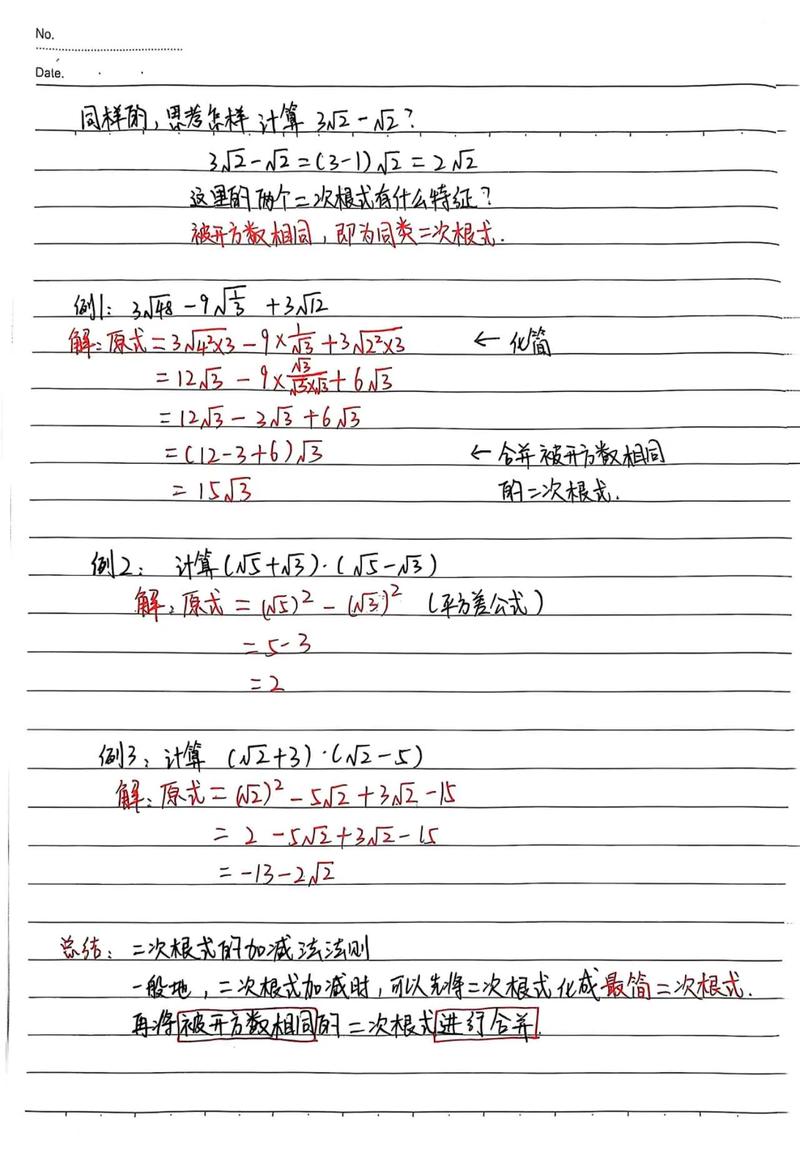 No.
Date.
同样的，思考怎样计算 3√2-√2？
3√2-√2=(3-1)√2=2√2
这里的两个二次根式有什么特征？
被开方数相同，即为同类二次根式.
例1：3√48-9√(1/3)+3√12
解：原式=3√(4²×3)-9×1/√3+3√(2²×3) ←化简
=12√3-9×√3/(√3×√3)+6√3
=12√3-3√3+6√3
=(12-3+6)√3 ←合并被开方数相同
=15√3 的二次根式.
例2：计算(√5+√3)·(√5-√3)
解：原式=(√5)²-(√3)² (平方差公式)
=5-3
=2
例3：计算 (√2+3)·(√2-5)
解：原式=(√2)²-5√2+3√2-15
=2-5√2+3√2-15
=-13-2√2
总结：二次根式的加减法法则
一般地，二次根式加减时，可以先将二次根式化成最简二次根式.
再将被开方数相同的二次根式进行合并.